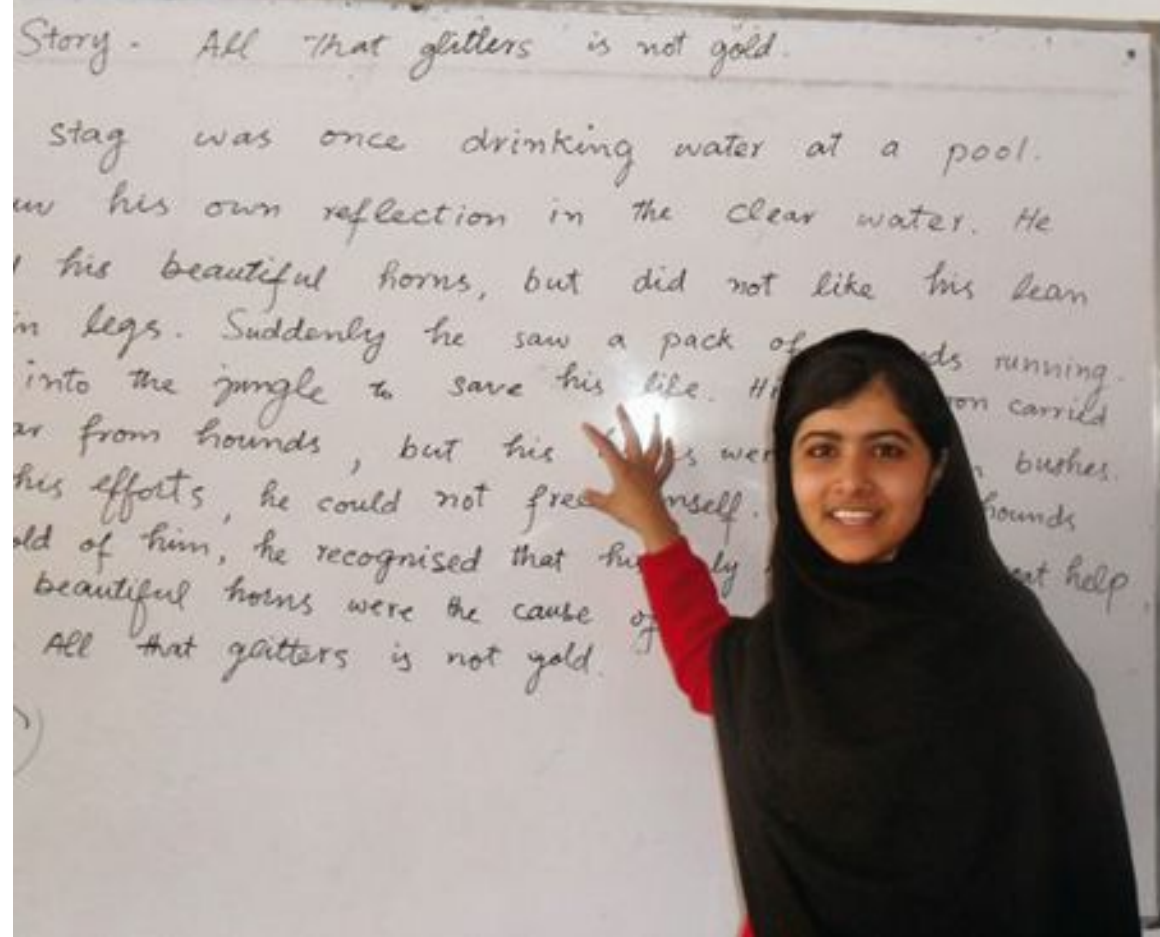 Story. All that glitters is not gold.
stag was once drinking water at a pool.
his own reflection in the clear water. He
his beautiful horns, but did not like his lean
legs. Suddenly he saw a pack of running.
into the jungle to save his life. carried
from hounds, but his bushes.
his efforts, he could not hounds
of him, he recognised that help.
beautiful horns were the cause of
All that glitters is not gold.